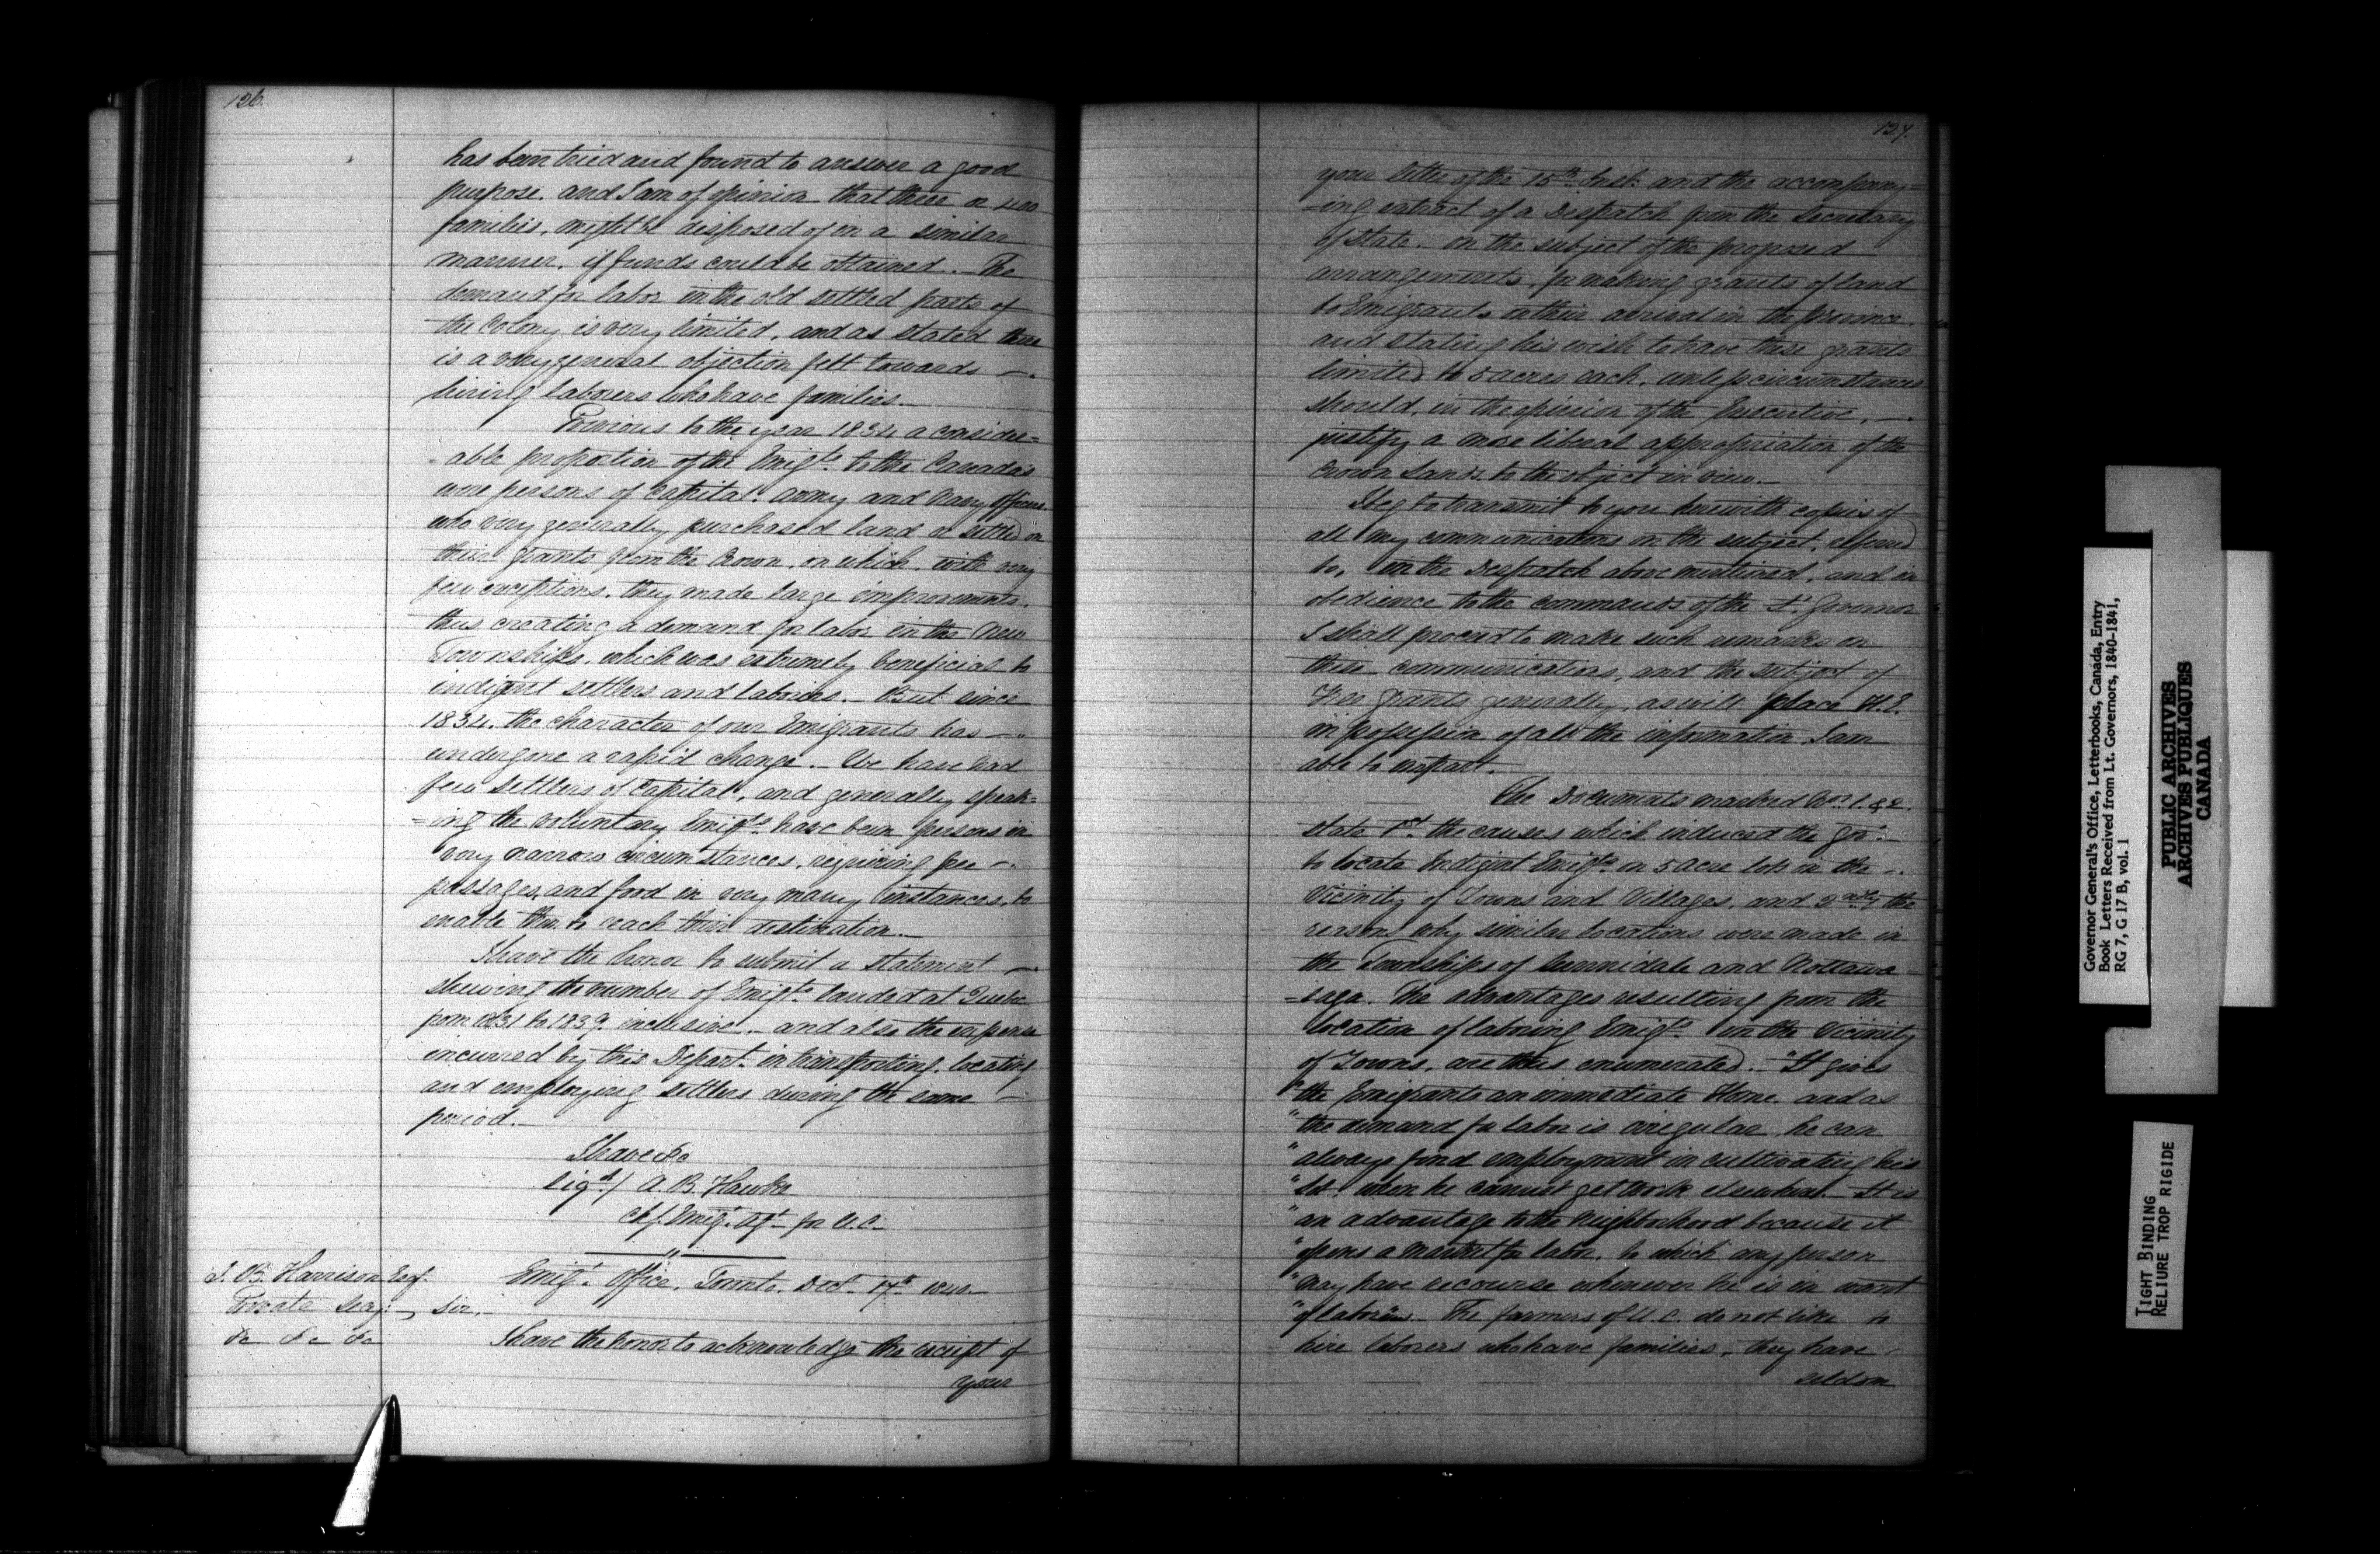 126.
has been tried and found to answer a good
purpose. and I am of opinion that three or 400
families, might be disposed of in a similar
manner, if funds could be obtained. _ The
demand for labor in the old settled parts of
the Colony is very limited, and as stated there
is a very general objection felt towards _
hiring laborers who have families. _
Previous to the year 1834 a consider=
=able proportion of the Emigts. to the Canadas
were persons of Capital. Army and Navy Officers
who very generally purchased land or settled on
their grants from the Crown, on which, with very
few exceptions, they made large improvements,
thus creating a demand for labor in the New
Townships, which was extremely beneficial to
indigent settlers and laborers. _ But since
1834. the character of our Emigrants has _
undergone a rapid change. _ We have had
few settlers of Capital, and generally speak=
=ing the voluntary Emigts. have been persons in
very narrow circumstances, requiring free _
passages, and food in very many instances, to
enable them to reach their destination. _
I have the honor to submit a statement _
shewing the number of Emigts. landed at Quebec
from 1831 to 1839. inclusive. _ and also the expense
incurred by this Depart. in transporting, locating
and employing settlers during the same _
period. _
I have &c
Sigd./ A. B. Hawke
Chf. Emigt. Agt. for U. C.
S. B. Harrison Esqr.
Private Secy.
&c &c &c
Emigt. Office, Toronto. Decr. 17th. 1840. _
Sir,
I have the honor to acknowledge the receipt of
your
127.
your letter of the 15th. Inst. and the accompany=
=ing extract of a Despatch from the Secretary
of State. on the subject of the proposed
arrangements, for making grants of land
to Emigrants on their arrival in the province.
and stating his wish to have these grants
limited to 5 acres each, unless circumstances
should, in the opinion of the Executive, _
justify a more liberal appropriation of the
Crown Lands to the object in view. _
I beg to transmit to you herewith copies of
all my communications on the subject, referred
to, in the Despatch above mentioned, and in
obedience to the commands of the Lt. Governor
I shall proceed to make such remarks on
these communications, and the subject of
Free grants generally, as will place H. E.
in possession of all the information I am
able to impart.
The Documents marked Nos. 1. & 2.
state 1st. the causes which induced the Govt.
to locate Indigent Emigts. on 5 acre lots in the _
Vicinity of Towns and Villages, and 2ndly. the
reasons why similar locations were made in
the Townships of Sunnidale and Nottawa
=saga. The advantages resulting from the
location of laboring Emigts. in the Vicinity
of Towns, are thus enumerated. _ "It gives
"the Emigrants an immediate Home. and as
"the demand for labor is irregular, he can
"always find employment in cultivating his
"lot. when he cannot get work elsewhere. _ It is
"an advantage to the Neighborhood because it
"opens a market for labor. to which any person
"may have recourse whenever he is in want
"of laborers. _ The farmers of U. C. do not like to
hire laborers who have families, they have
seldom
Governor General's Office, Letterbooks, Canada, Entry
Book Letters Received from Lt. Governors, 1840-1841,
RG 7, G 17 B, vol. 1
PUBLIC ARCHIVES
ARCHIVES PUBLIQUES
CANADA
TIGHT BINDING
RELIURE TROP RIGIDE